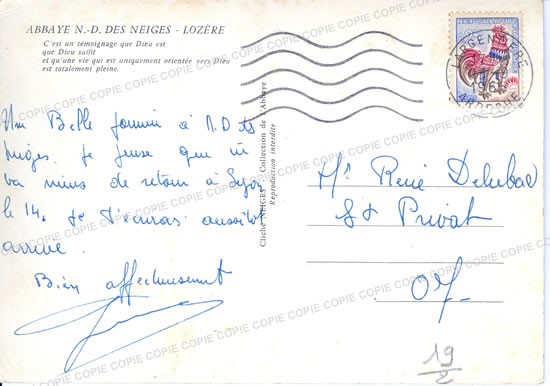 ABBAYE N.-D. DES NEIGES - LOZÈRE
C'est un témoignage que Dieu est
que Dieu suffit
et qu'une vie qui est uniquement orientée vers Dieu
est totalement pleine.
Une Belle journée à N.D des
neiges. Je pense que
va mieux de retour à
le 14. Je t'écrirai aussitôt
arrivé.
Bien affectueusement
Cliché NEIGES - Collection de l'Abbaye
Reproduction interdite
LARGENTIERE
ARDECHE
Mr René Delubac
St Privat
07
19/2
COPIE COPIE COPIE COPIE COPIE COPIE COPIE COPIE